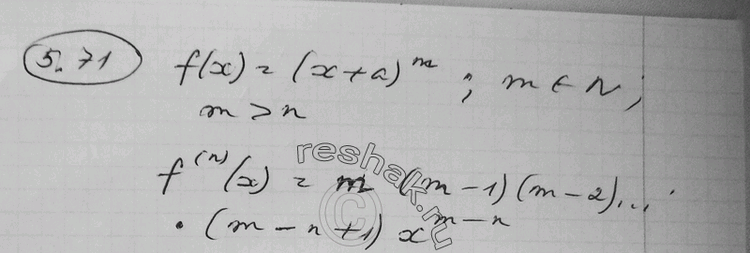 5.71 f(x) = (x+a)^m ; m ∈ N;
m > n
f^(n)(x) = m (m-1)(m-2)...·
· (m-n+1) x^m-n
reshak.ru
©